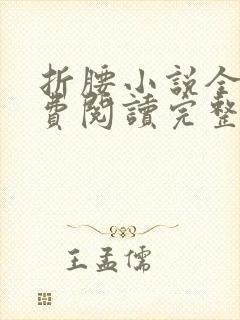 折腰小説全
費閱讀完整
王孟儒